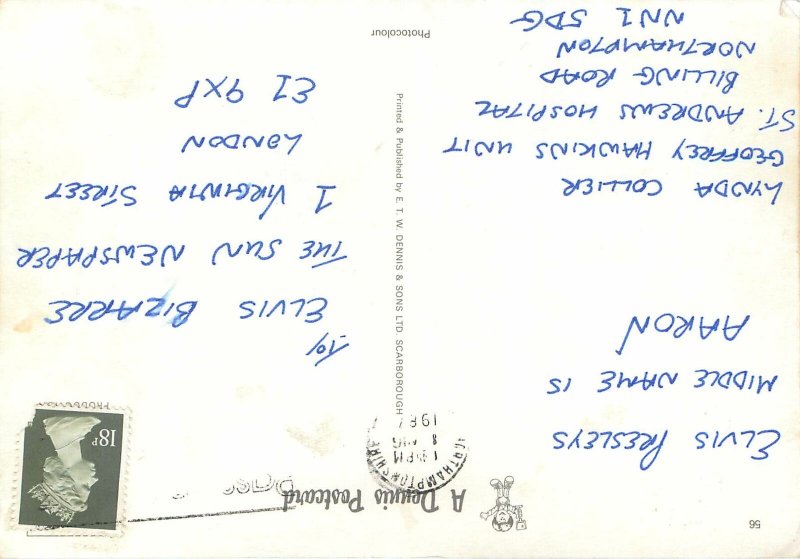 56
A Dennis Postcard
ELVIS PRESLEYS
MIDDLE NAME IS
AARON
LYNDA COLLIER
GEOFFREY HAWKINS UNIT
ST. ANDREWS HOSPITAL
BILLING ROAD
NORTHAMPTON
NN1 5DG
Photocolour
Printed & Published by E. T. W. DENNIS & SONS LTD. SCARBOROUGH
NORTHAMPTONSHIRE
PM
8 AUG
198
18P
TO/
ELVIS BIZARRE
THE SUN NEWSPAPER
1 VIRGINIA STREET
LONDON
E1 9XP